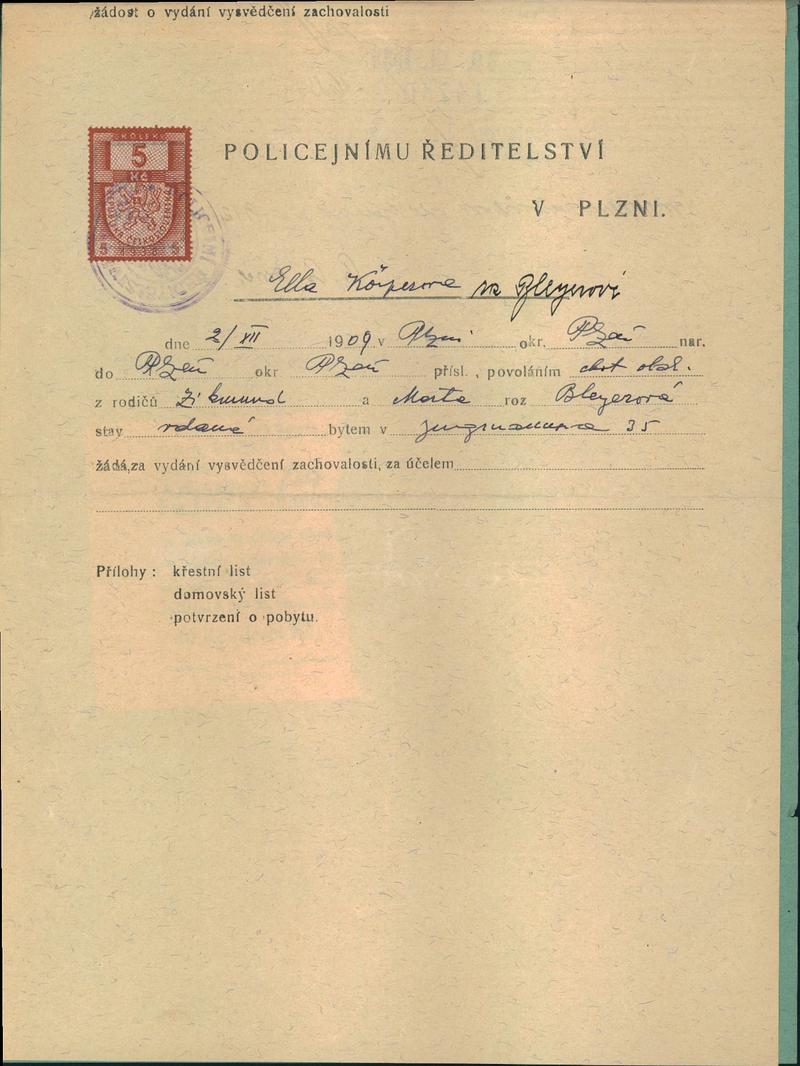 žádost o vydání vysvědčení zachovalosti
KOLEK
5
Kč
REPUBLIKA ČESKOSLOVENSKÁ
5 1938 5
POLICEJNÍMU ŘEDITELSTVÍ
V PLZNI.
Ella Körperova roz Bleyerová
dne 2/XII 1909 v Plzni okr. Plzeň nar.
do Plzeň okr Plzeň přísl., povoláním chot obch.
z rodičů Zikmund a Marta roz Bleyerová
stav vdaná bytem v Jungmannova 35
žádá,za vydání vysvědčení zachovalosti, za účelem
Přílohy : křestní list
domovský list
potvrzení o pobytu.